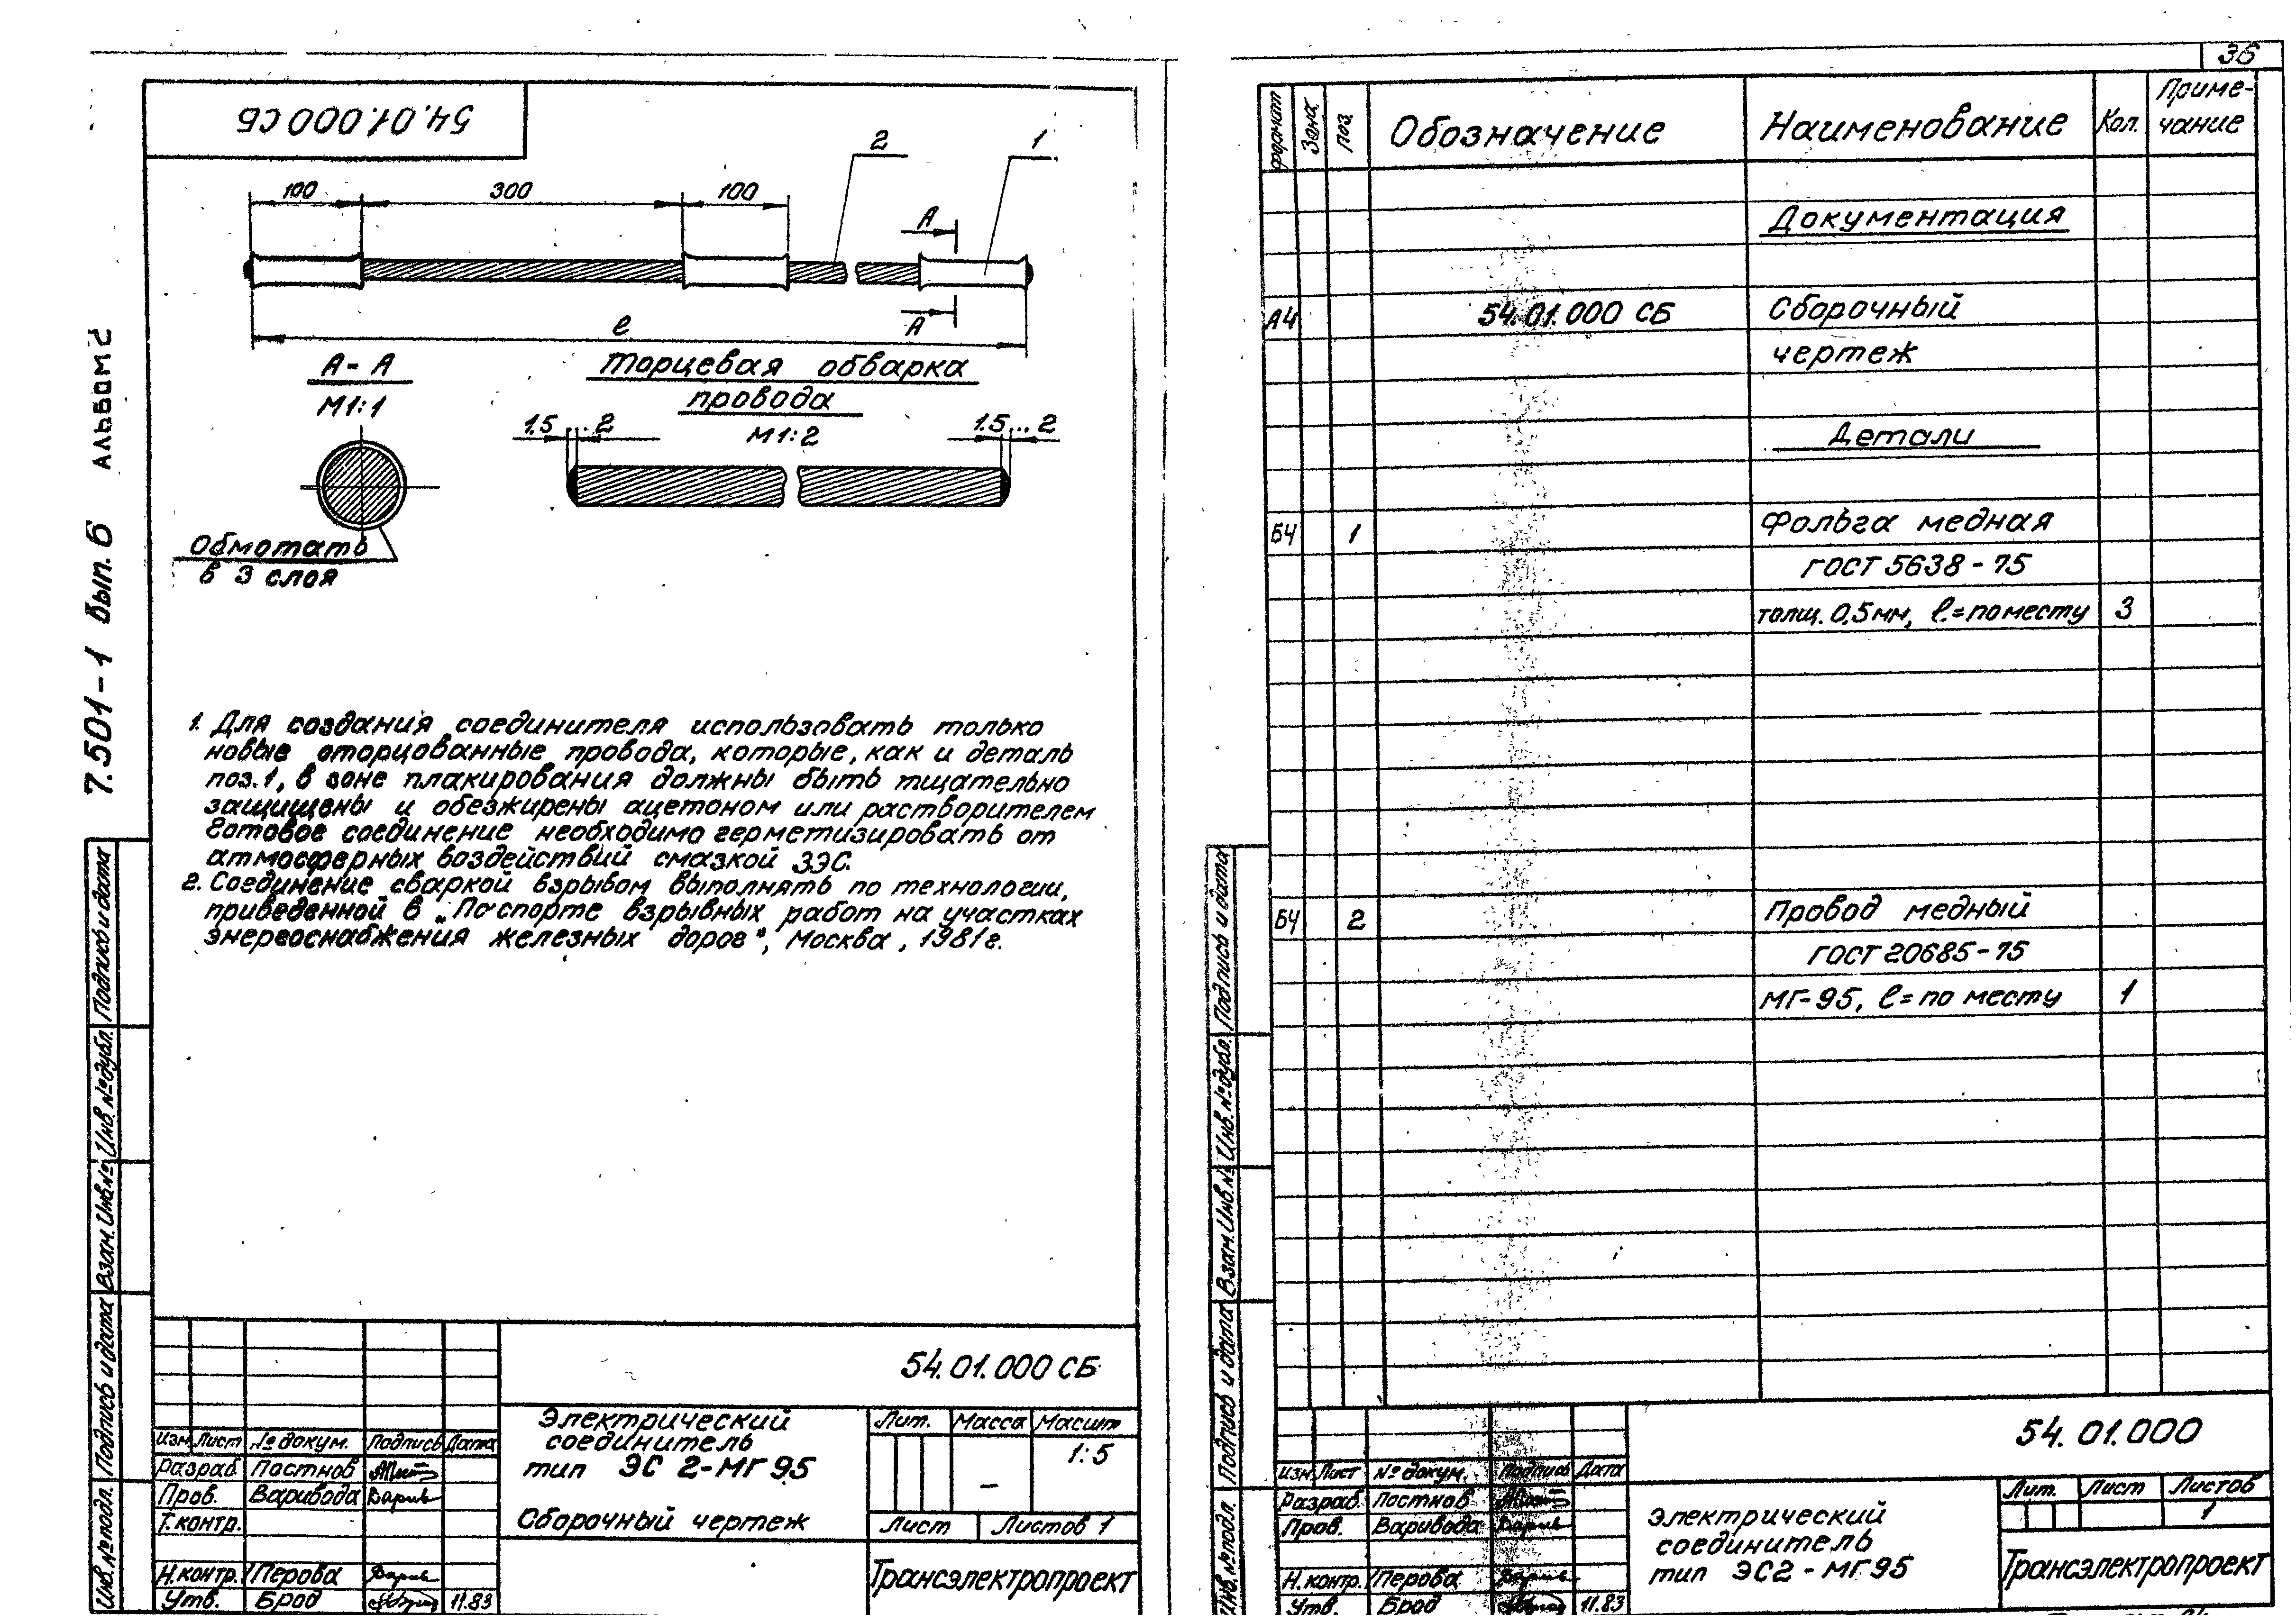 54.01.000 СБ
2
1
100
300
100
А
А
ℓ
А-А
М1:1
Торцевая обварка
провода
М1:2
1.5...2
1.5...2
Обмотать
в 3 слоя
7.501-1 вып. 6 Альбом 2
1. Для создания соединителя использовать только
новые оторцованные провода, которые, как и деталь
поз.1, в зоне плакирования должны быть тщательно
защищены и обезжирены ацетоном или растворителем
Готовое соединение необходимо герметизировать от
атмосферных воздействий смазкой ЗЭС.
2. Соединение сваркой взрывом выполнять по технологии,
приведенной в „Паспорте взрывных работ на участках
энергоснабжения железных дорог", Москва, 1981г.
Инв.№подл. Подпись и дата Взам.Инв.№ Инв.№дубл. Подпись и дата
54.01.000 СБ
Электрический
соединитель
тип ЭС 2-МГ95
Сборочный чертеж
Лит. Масса Масшт
– 1:5
Лист Листов 1
Трансэлектропроект
Изм Лист № докум. Подпись Дата
Разраб Постнов
Пров. Варивода
Т.контр.
Н.контр. Перова
Утв. Брод 11.83
36
формат Зона поз. Обозначение Наименование Кол. Приме-
чание
Документация
А4 54.01.000 СБ Сборочный
чертеж
Детали
Б4 1 Фольга медная
ГОСТ 5638-75
толщ. 0,5мм, ℓ=по месту 3
Б4 2 Провод медный
ГОСТ 20685-75
МГ-95, ℓ=по месту 1
Инв.№подл. Подпись и дата Взам.Инв.№ Инв.№дубл. Подпись и дата
54.01.000
Изм Лист № докум. Подпись Дата
Разраб. Постнов
Пров. Варивода
Н.контр. Перова
Утв. Брод 11.83
Электрический
соединитель
тип ЭС2-МГ95
Лит. Лист Листов
1
Трансэлектропроект